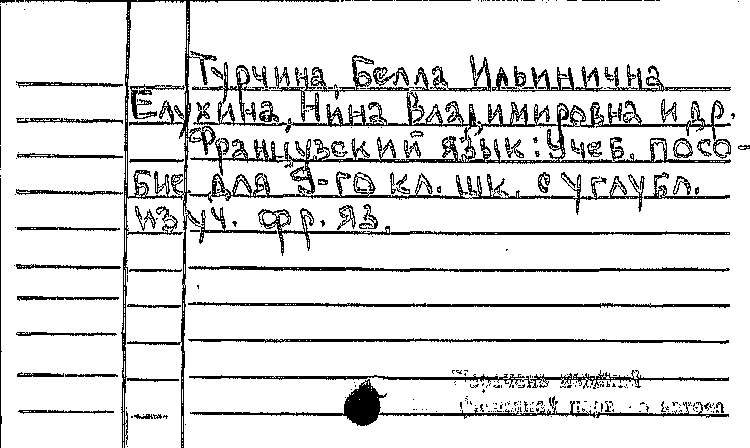 Турчина, Белла Ильинична
Елухина, Нина Владимировна и др.
Французский язык: Учеб. посо-
бие для 9-го кл. шк. с углубл.
изуч. фр. яз.